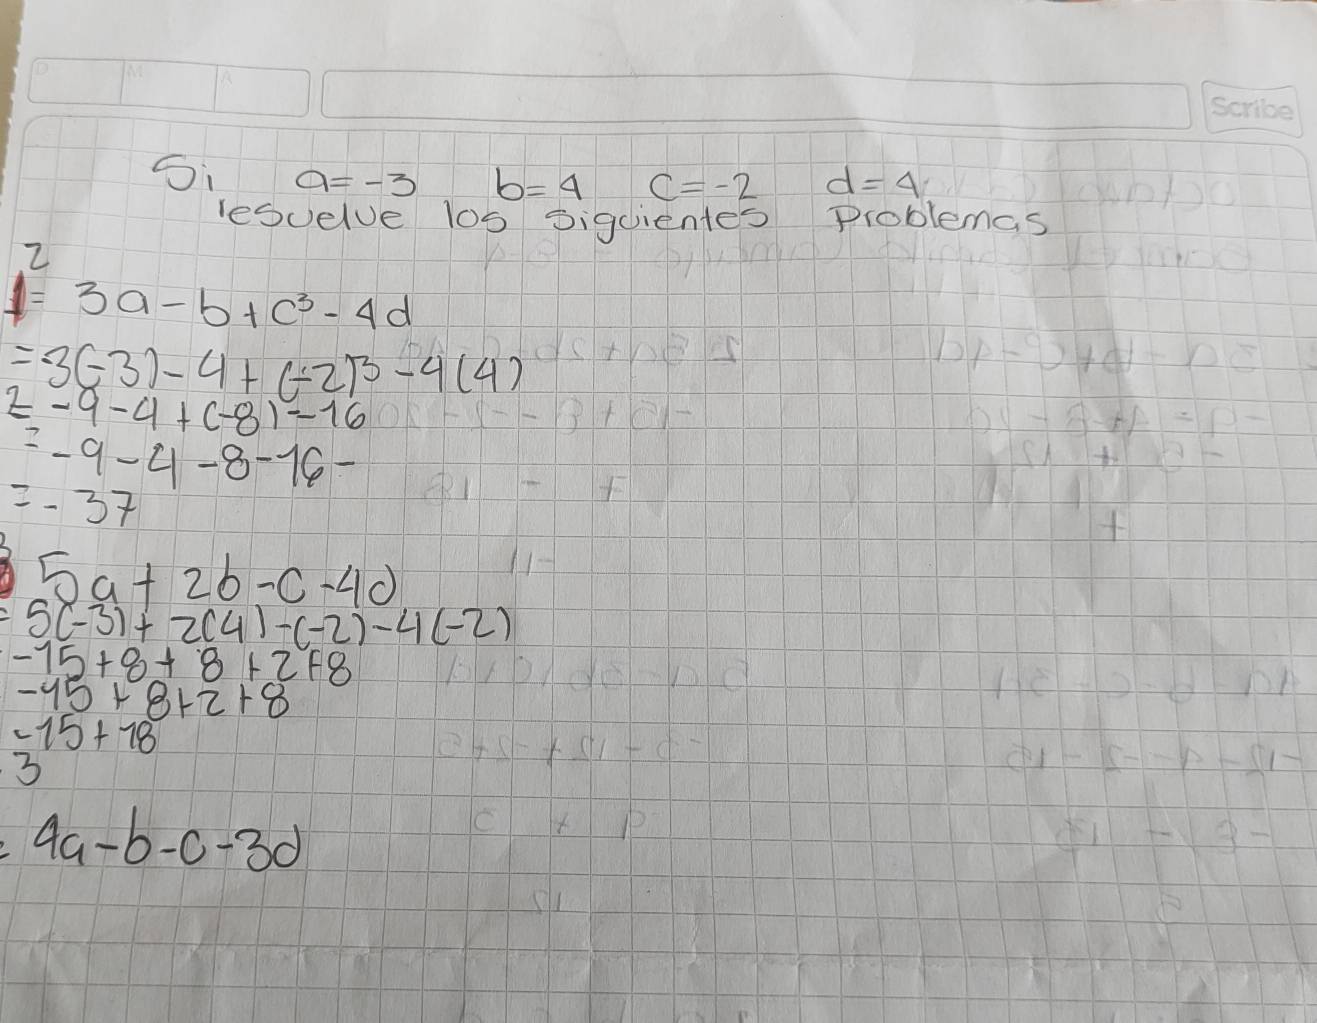 D M A
Scribe
Si a=-3 b=4 c=-2 d=4
resuelve los siguientes Problemas
2
1= 3a-b+c³-4d
=3(-3)-4+(-2)³-4(4)
= -9-4+(-8)-16
= -9-4-8-16-
=-37
3
5a+2b-c-4d
=5(-3)+2(4)-(-2)-4(-2)
-15+8+8+2+8
-15+8+2+8
-15+18
3
= 4a-b-c-3d